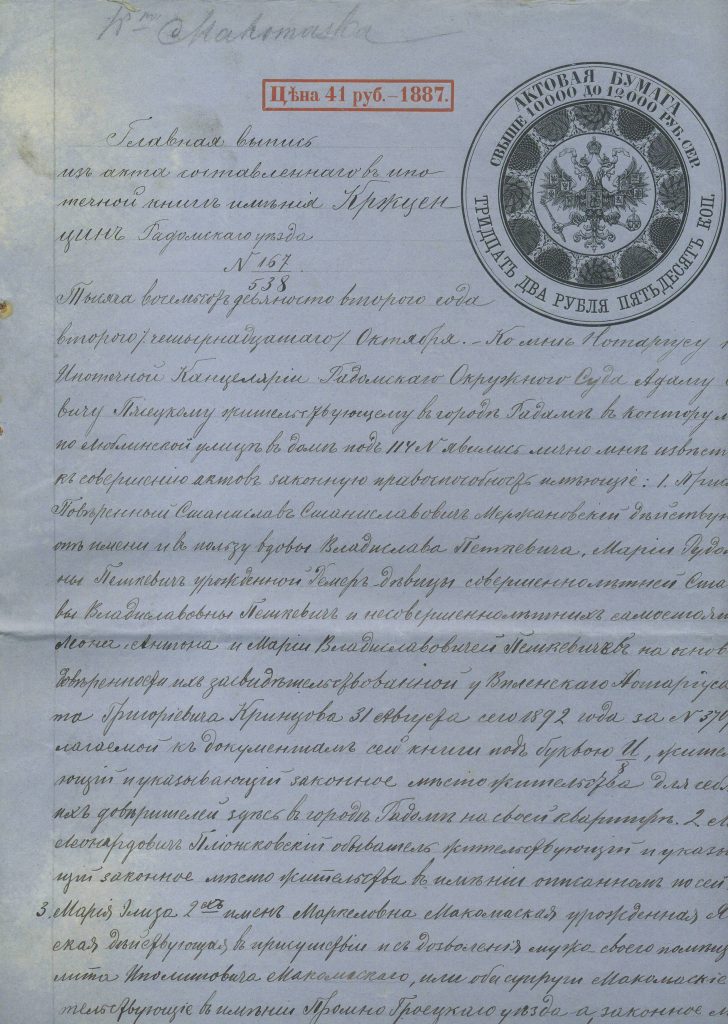 Макомаска
Цѣна 41 руб.–1887.
АКТОВАЯ БУМАГА
СВЫШЕ 10000 ДО 12000 РУБ. СЕР.
ТРИДЦАТЬ ДВА РУБЛЯ ПЯТЬДЕСЯТЪ КОП.
Главная выпись
изъ акта составленнаго въ ипо
течной книгѣ имѣнія Кржцен
цинъ Радомскаго уѣзда
N 167
538
Тысяча восемьсотъ девяносто второго года
второго /четырнадцатаго/ Октября. – Ко мнѣ Нотаріусу
Ипотечной Канцеляріи Радомскаго Окружного Суда Адаму
вичу Плецкому жительствующему въ городѣ Радомѣ въ контору
по Люблинской улицѣ въ домѣ подъ 114 N явились лично мнѣ извѣст
къ совершенію актовъ законную правоспособность имѣющіе: 1. Прис
Повѣренный Станиславъ Станиславовичъ Мержановскій дѣйствую
отъ имени и въ пользу вдовы Владислава Петкевича, Маріи Рудо
ны Петкевичъ урожденной Гемеръ дѣвицы совершеннолѣтней Ста
вы Владиславовны Петкевичъ и несовершеннолѣтнихъ самостоят
Леона Антона и Маріи Владиславовичей Петкевичевъ на основ
довѣренности ихъ засвидѣтельствованной у Виленскаго Нотаріуса
та Григоріевича Кринцова 31 Августа сего 1892 года за N
лагаемой къ документамъ сей книги подъ буквою И, жител
ющій и указывающій законное мѣсто жительства для себя
ихъ довѣрителей здѣсь въ городѣ Радомѣ на своей квартирѣ. 2.
Леонардовичъ Піонжковскій обыватель жительствующій и указы
щій законное мѣсто жительства въ имѣніи описанномъ по сей
3. Марія Элиза 2 ехъ именъ Маркеловна Макомаская урожденная
ская дѣйствующая въ присутствіи и съ дозволенія мужа своего помѣщ
лита Иполитовича Макомаскаго, или оба супруги Макомаскіе
тельствующіе въ имѣніи Промно Гроецкаго уѣзда а законное